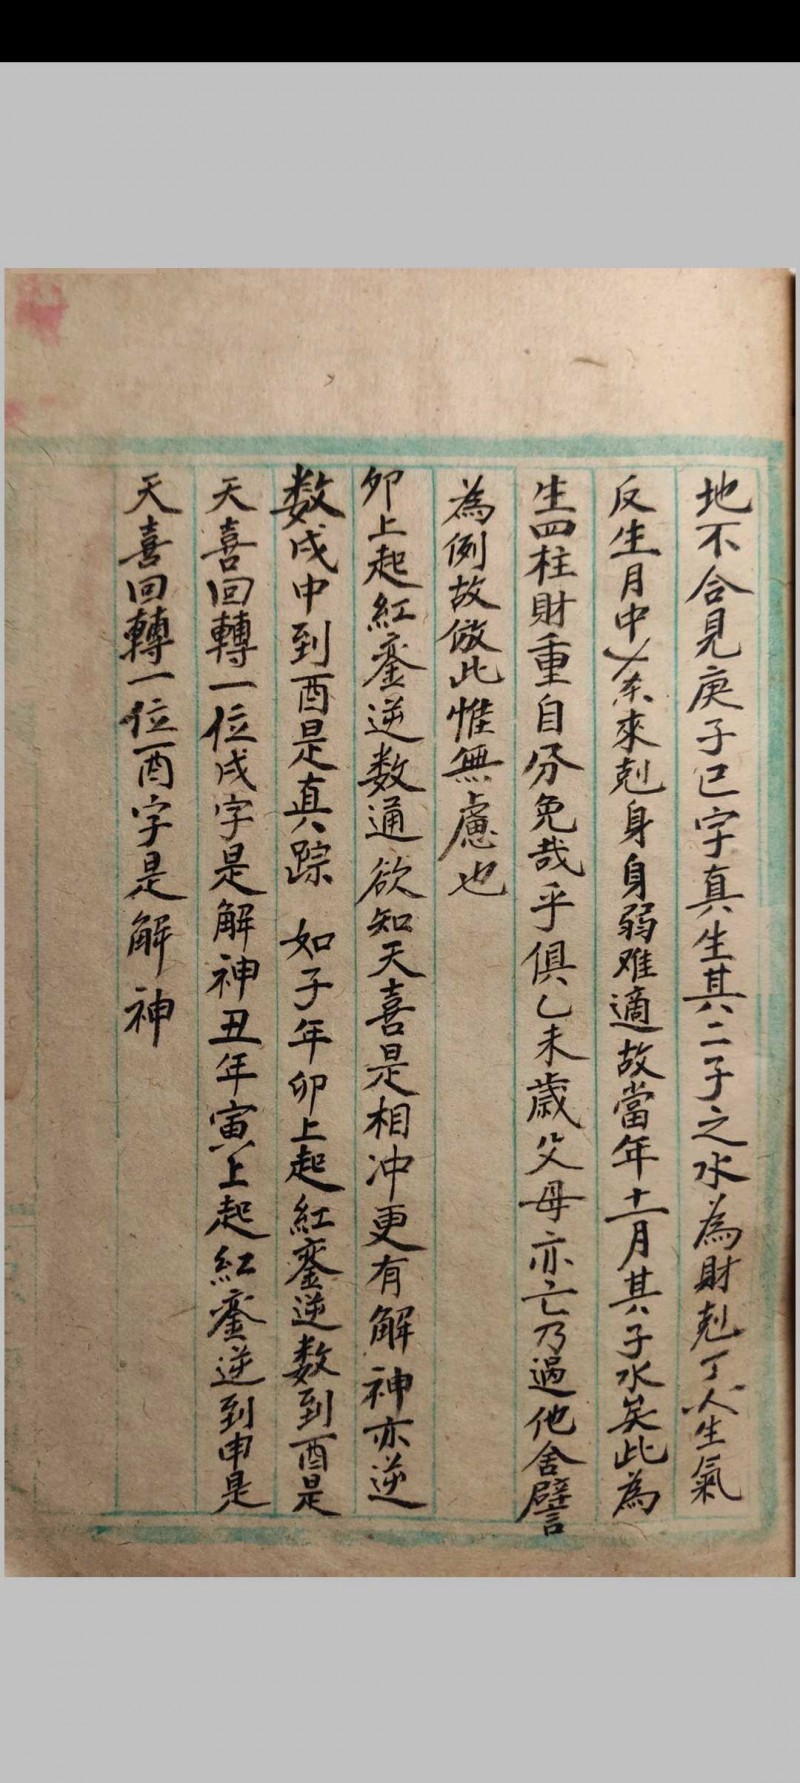 地不合見庚子巳字真生其二子之水為財剋丁火生氣
反生月中乂未來剋身身弱难適故當年十一月其子水矣此為
生四柱財重自分免哉乎俱乙未歲父母亦亡乃過他舍譬
為例故倣此惟無慮也
卯上起紅鸞逆数通欲知天喜是相冲更有解神亦逆
数戌中到酉是真踪 如子年卯上起紅鸞逆数到酉是
天喜回轉一位戌字是解神丑年寅上起紅鸞逆到申是
天喜回轉一位酉字是解神